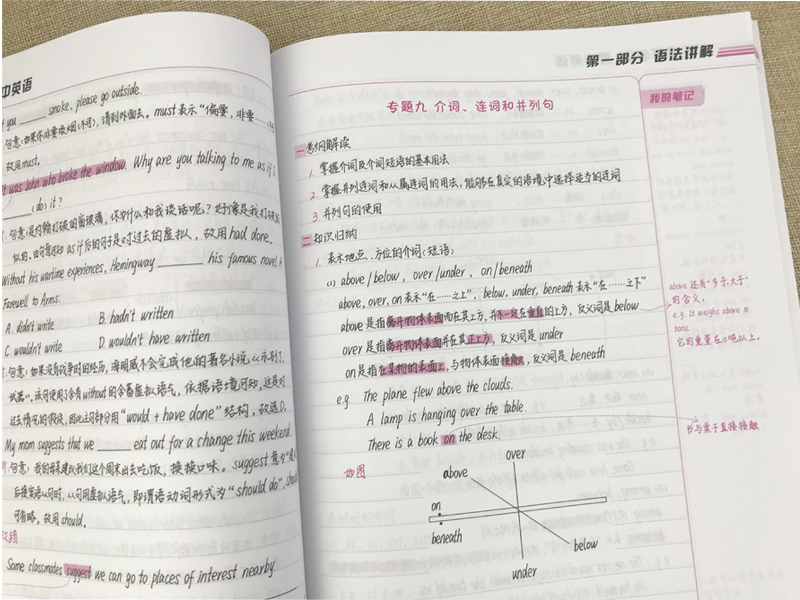 中英语
you ______ smoke, please go outside.
句意:如果你非要吸烟(不可),请到外面去。must 表示“偏要,非要……
故用must.
It was John who broke the window. Why are you talking to me as if I
______ (do) it?
句意:是约翰打破的窗玻璃,你为什么和我谈话呢?好像是我打破
似的。由句意可知 as if 后的句子是对过去的虚拟,故用 had done.
Without his wartime experiences, Hemingway ______ his famous novel A
Farewell to Arms.
A. didn't write B. hadn't written
C. wouldn't write D. wouldn't have written
句意:如果没有战争时的经历,海明威不会完成他的著名小说《永别了,
武器》。该句使用了含有without的含蓄虚拟语气,依据语境可知,这是对
过去情况的假设,因此主句部分用“would + have done”结构,故选D.
My mom suggests that we ______ eat out for a change this weekend.
句意:我的母亲建议我们这个周末出去吃饭,换换口味。suggest 意为“建
后接宾语从句时,从句用虚拟语气,即谓语动词形式为“should do”, should
可省略,故用should.
改错
Some classmates suggest we can go to places of interest nearby
第一部分 语法讲解
专题九 介词、连词和并列句
我的笔记
一 考纲解读
1. 掌握介词及介词短语的基本用法
2. 掌握并列连词和从属连词的用法,能够在真实的语境中选择适当的连词
3. 并列句的使用
二 知识归纳
1. 表示地点、方位的介词(短语)
(1) above/below, over/under, on/beneath
above, over, on 表示“在……之上”, below, under, beneath 表示“在……之下”
above是指离开物体表面而在其上方,并不一定在垂直的上方,反义词是below
over是指离开物体表面并在其正上方,反义词是under
on是指在某物的表面上,与物体表面接触,反义词是beneath
e.g. The plane flew above the clouds.
A lamp is hanging over the table.
There is a book on the desk.
如图
over
above
on
beneath
below
under
above 还有“多于,大于”
的含义。
e.g. It weighs above n
tons.
它的重量在n吨以上。
书与桌子直接接触